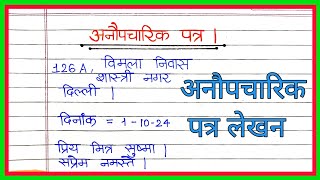 अनौपचारिक पत्र ।
126 A, विमला निवास
शास्त्री नगर
दिल्ली ।
दिनाँक = 1-10-24
प्रिय मित्र सुष्मा ।
सप्रेम नमस्ते ।
अनौपचारिक
पत्र लेखन